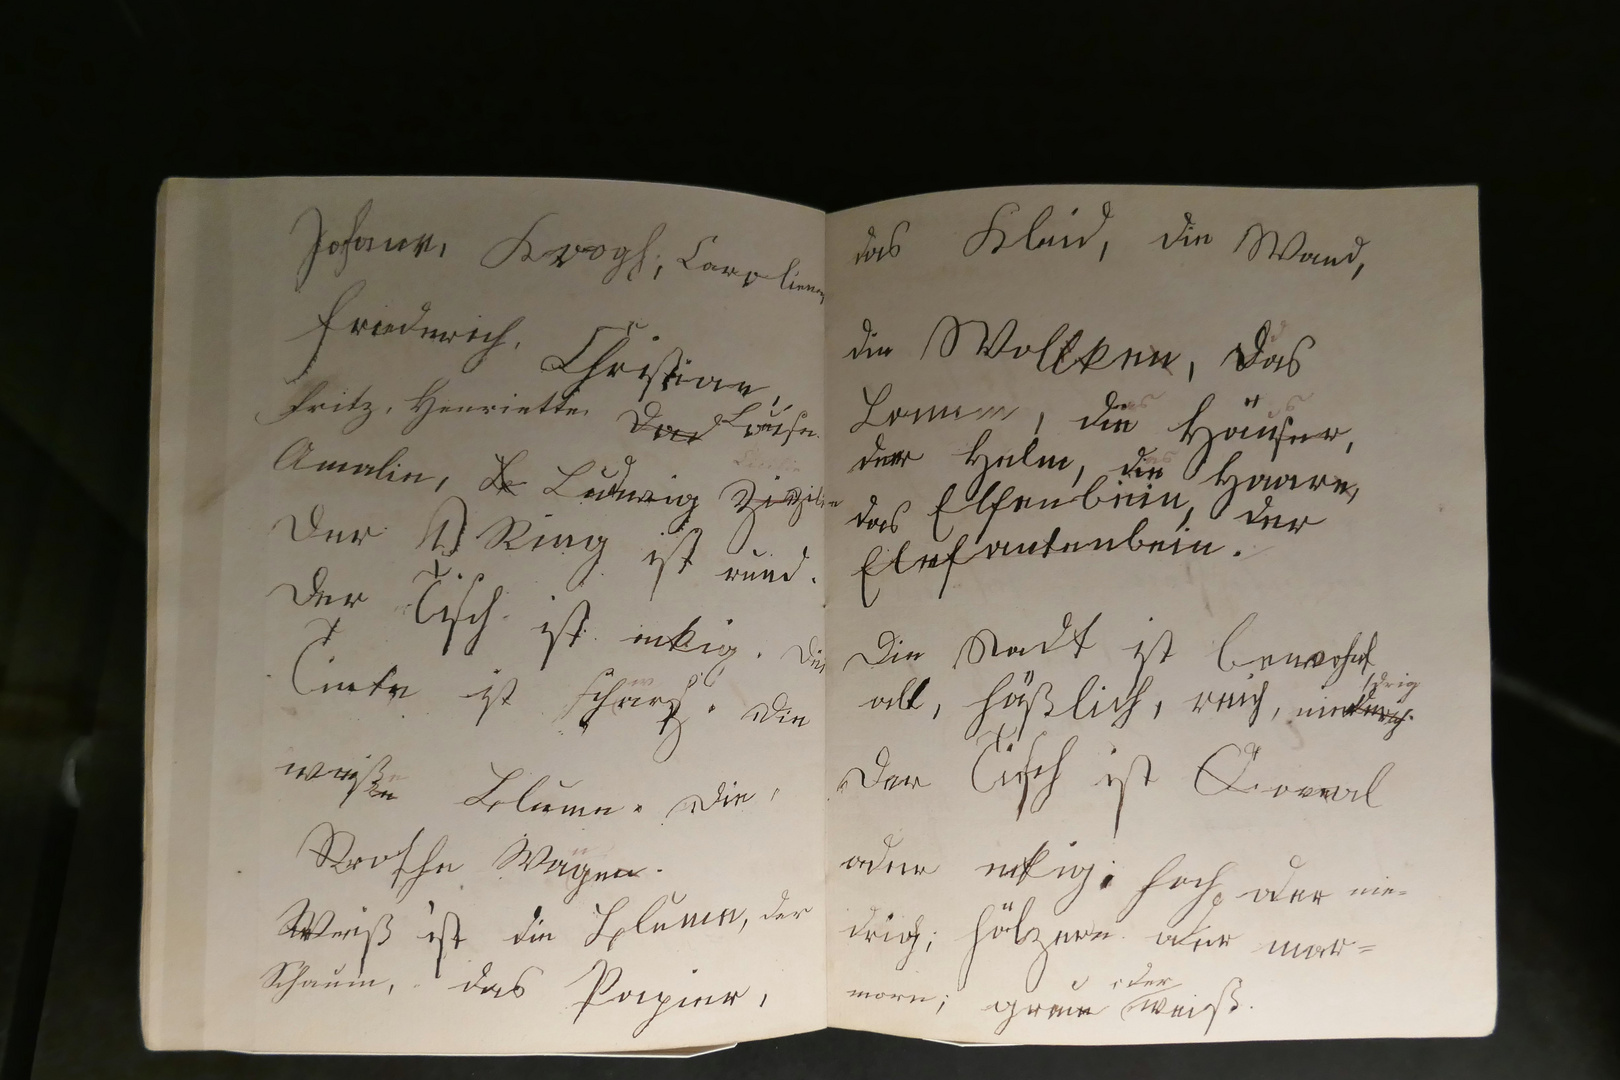 Johann, Krogh, Caroline
Friederich,
Christian,
Fritz, Henriette. Das Louise.
Amalie, Ludwig
Der Ring ist rund.
Der Tisch ist eckig. Die
Tinte ist schwarz. Die
weiße Blume. Die
Rothe Wagen.
Weiß ist die Blume, der
Schaum, das Papier,
das Kleid, die Wand,
die Wollken, Das
Lamm, die Häuser,
der Helm, die Haare,
das Elfenbein, der
Elefantenbein.
Die Stadt ist bewohnt
alt, häßlich, reich, niedrig
Der Tisch ist Ooval
oder eckig; hoch oder nie=
drich; hölzern oder mar=
morn; grau oder weiß.